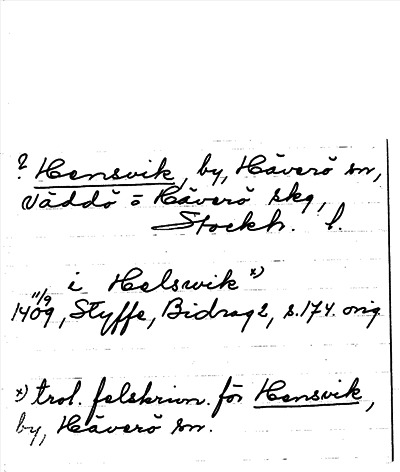 ? Hensvik, by, Häverö sn,
Väddö = Häverö skg,
Stockh. l.
i Helswik *)
11/9 1409, Styffe, Bidrag 2, s. 174. orig
*) trol. felskrivn. för Hensvik,
by, Häverö sn.